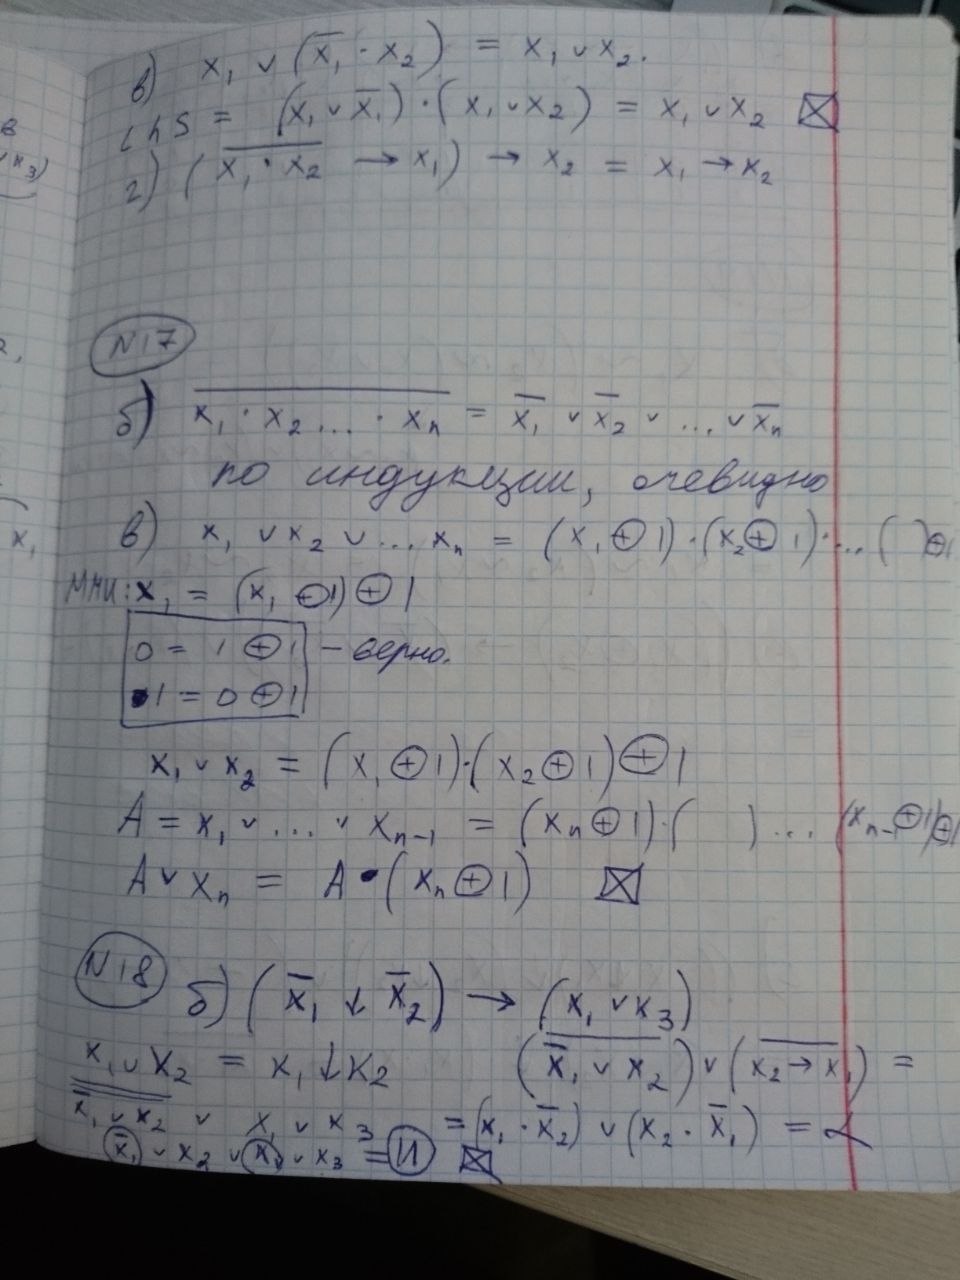 в) x₁ ∨ (x̅₁ · x₂) = x₁ ∨ x₂.
LhS = (x₁ ∨ x̅₁) · (x₁ ∨ x₂) = x₁ ∨ x₂ ⊠
г) (\overline{x₁ · x₂} → x₁) → x₂ = x₁ → x₂
N17
б) \overline{x₁ · x₂ ... · xₙ} = x̅₁ ∨ x̅₂ ∨ ... ∨ x̅ₙ
по индукции, очевидно
в) x₁ ∨ x₂ ∨ ... xₙ = (x₁ ⊕ 1) · (x₂ ⊕ 1) · ... ( ) ⊕ 1
ММИ: x₁ = (x₁ ⊕ 1) ⊕ 1
0 = 1 ⊕ 1 – верно.
1 = 0 ⊕ 1
x₁ ∨ x₂ = (x₁ ⊕ 1) · (x₂ ⊕ 1) ⊕ 1
A = x₁ ∨ ... ∨ xₙ₋₁ = (xₙ ⊕ 1) · ( ) ... (xₙ₋₁ ⊕ 1) ⊕ 1
A ∨ xₙ = A · (xₙ ⊕ 1) ⊠
N18
б) (x̅₁ ↓ x̅₂) → (x₁ ∨ x₃)
\overline{x₁ ∨ x₂} = x₁ ↓ x₂ (\overline{x̅₁ ∨ x₂}) ∨ (\overline{x₂ → x₁}) =
x̅₁ ∨ x̅₂ ∨ x₁ ∨ x₃ = (x₁ · x̅₂) ∨ (x₂ · x̅₁) =
x̅₁ ∨ x₂ ∨ x₁ ∨ x₃ = И ⊠